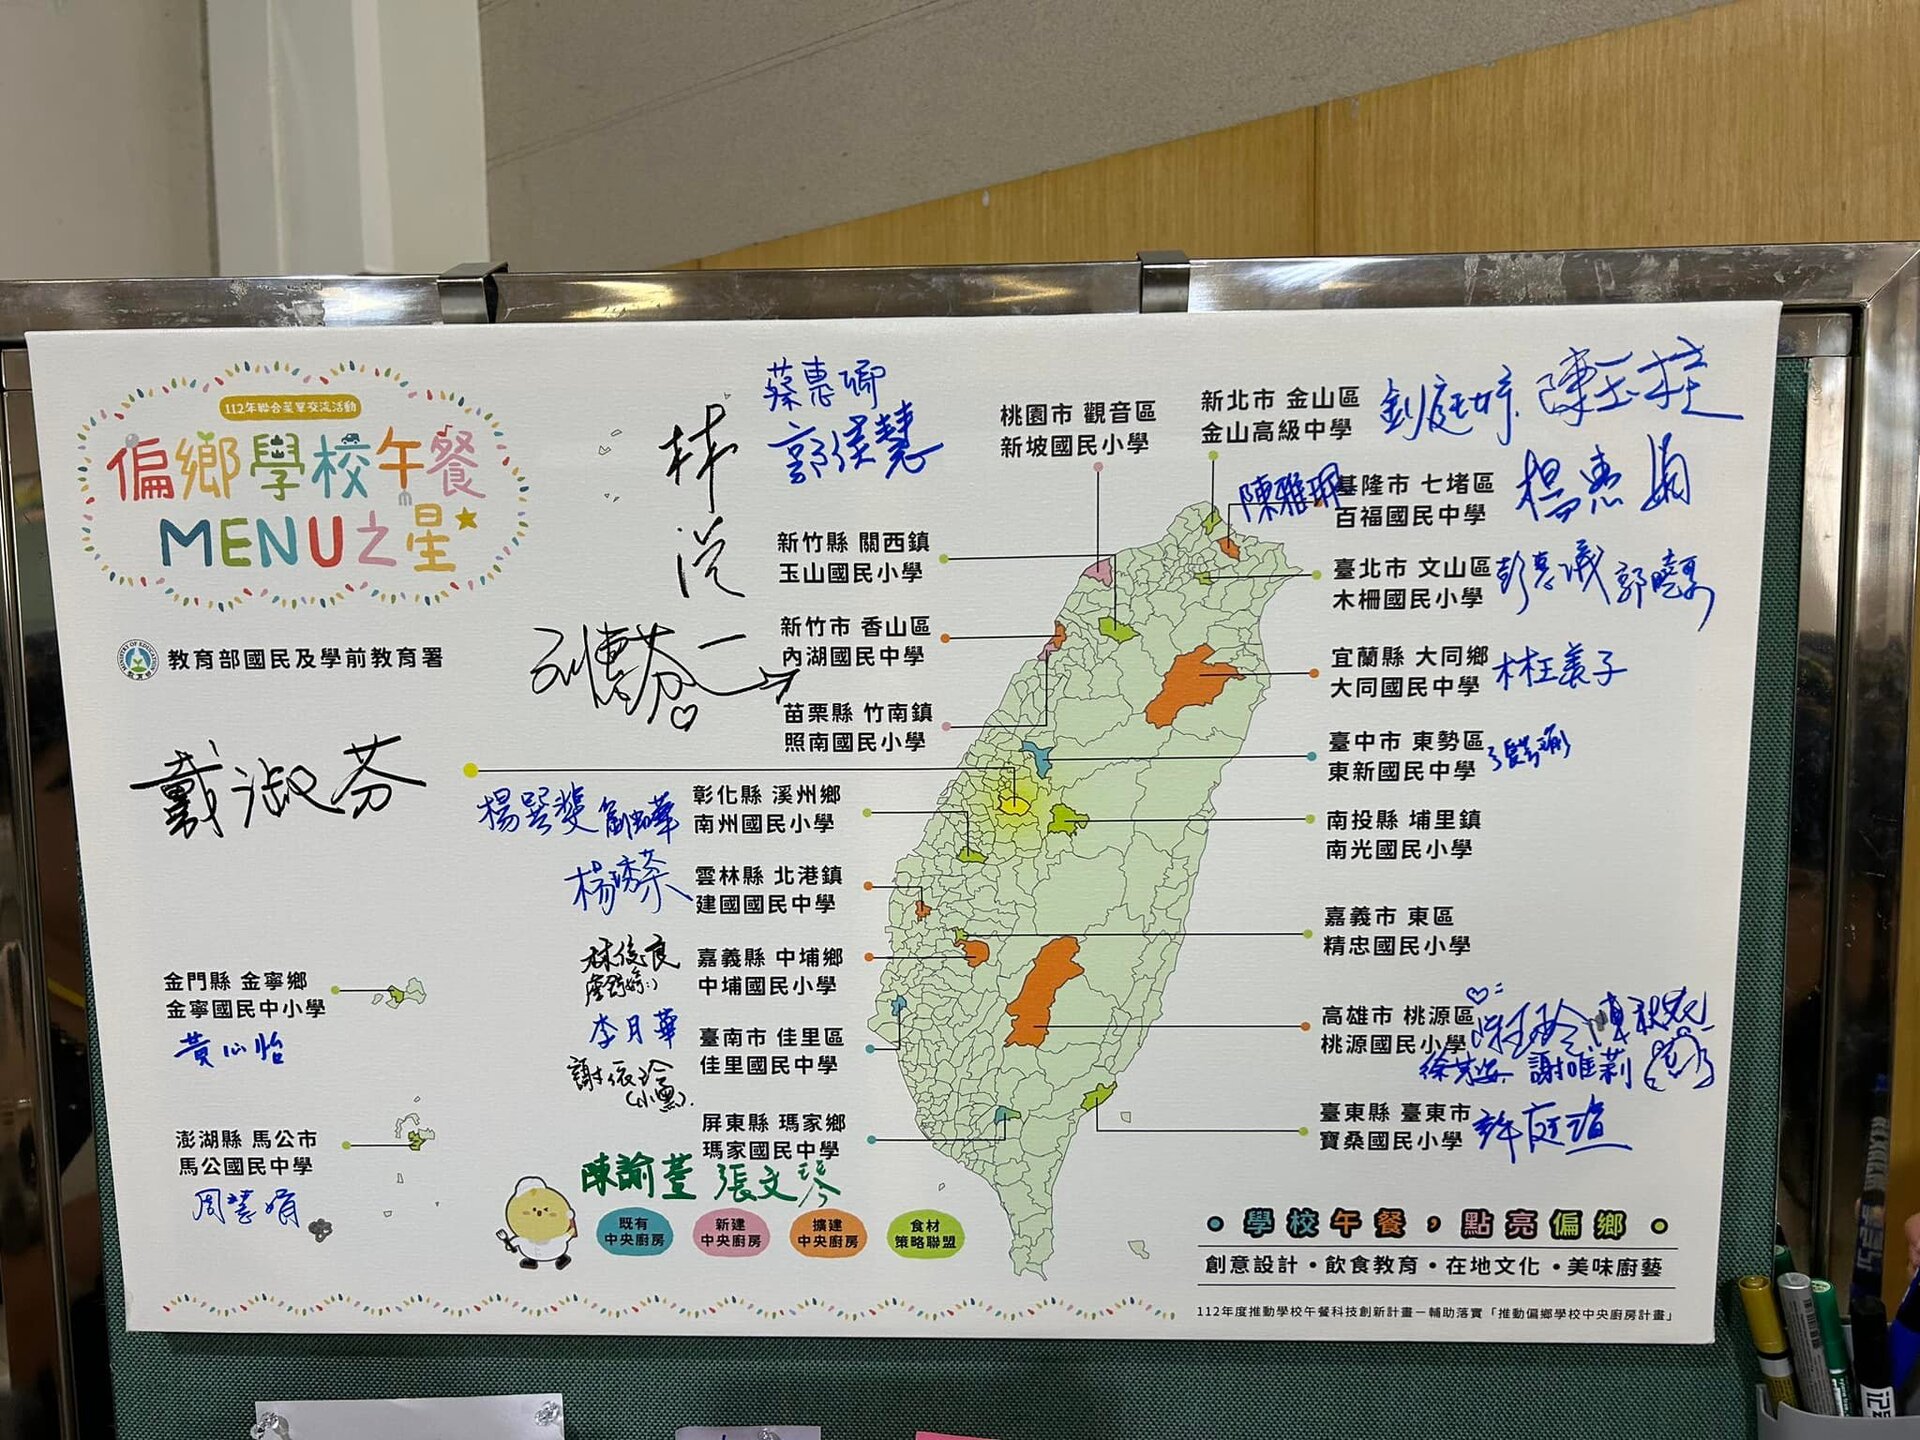 112年聯合菜單交流活動
偏鄉學校午餐
MENU之星
教育部國民及學前教育署
蔡惠卿
桃園市 觀音區
新坡國民小學
新北市 金山區
金山高級中學
陳雅玥
基隆市 七堵區
百福國民中學
楊惠娟
新竹縣 關西鎮
玉山國民小學
臺北市 文山區
木柵國民小學
彭惠儀
新竹市 香山區
內湖國民中學
宜蘭縣 大同鄉
大同國民中學
苗栗縣 竹南鎮
照南國民小學
臺中市 東勢區
東新國民中學
戴淑芬
彰化縣 溪州鄉
南州國民小學
南投縣 埔里鎮
南光國民小學
雲林縣 北港鎮
建國國民中學
楊琇茶
嘉義市 東區
精忠國民小學
林俊良
嘉義縣 中埔鄉
中埔國民小學
金門縣 金寧鄉
金寧國民中小學
黃心怡
李月華
臺南市 佳里區
佳里國民中學
謝依玲
高雄市 桃源區
桃源國民小學
謝唯莉
屏東縣 瑪家鄉
瑪家國民中學
臺東縣 臺東市
寶桑國民小學
許庭瑄
澎湖縣 馬公市
馬公國民中學
周慧娟
陳諭萱 張文琴
既有
中央廚房
新建
中央廚房
擴建
中央廚房
食材
策略聯盟
學校午餐，點亮偏鄉
創意設計・飲食教育・在地文化・美味廚藝
112年度推動學校午餐科技創新計畫－輔助落實「推動偏鄉學校中央廚房計畫」